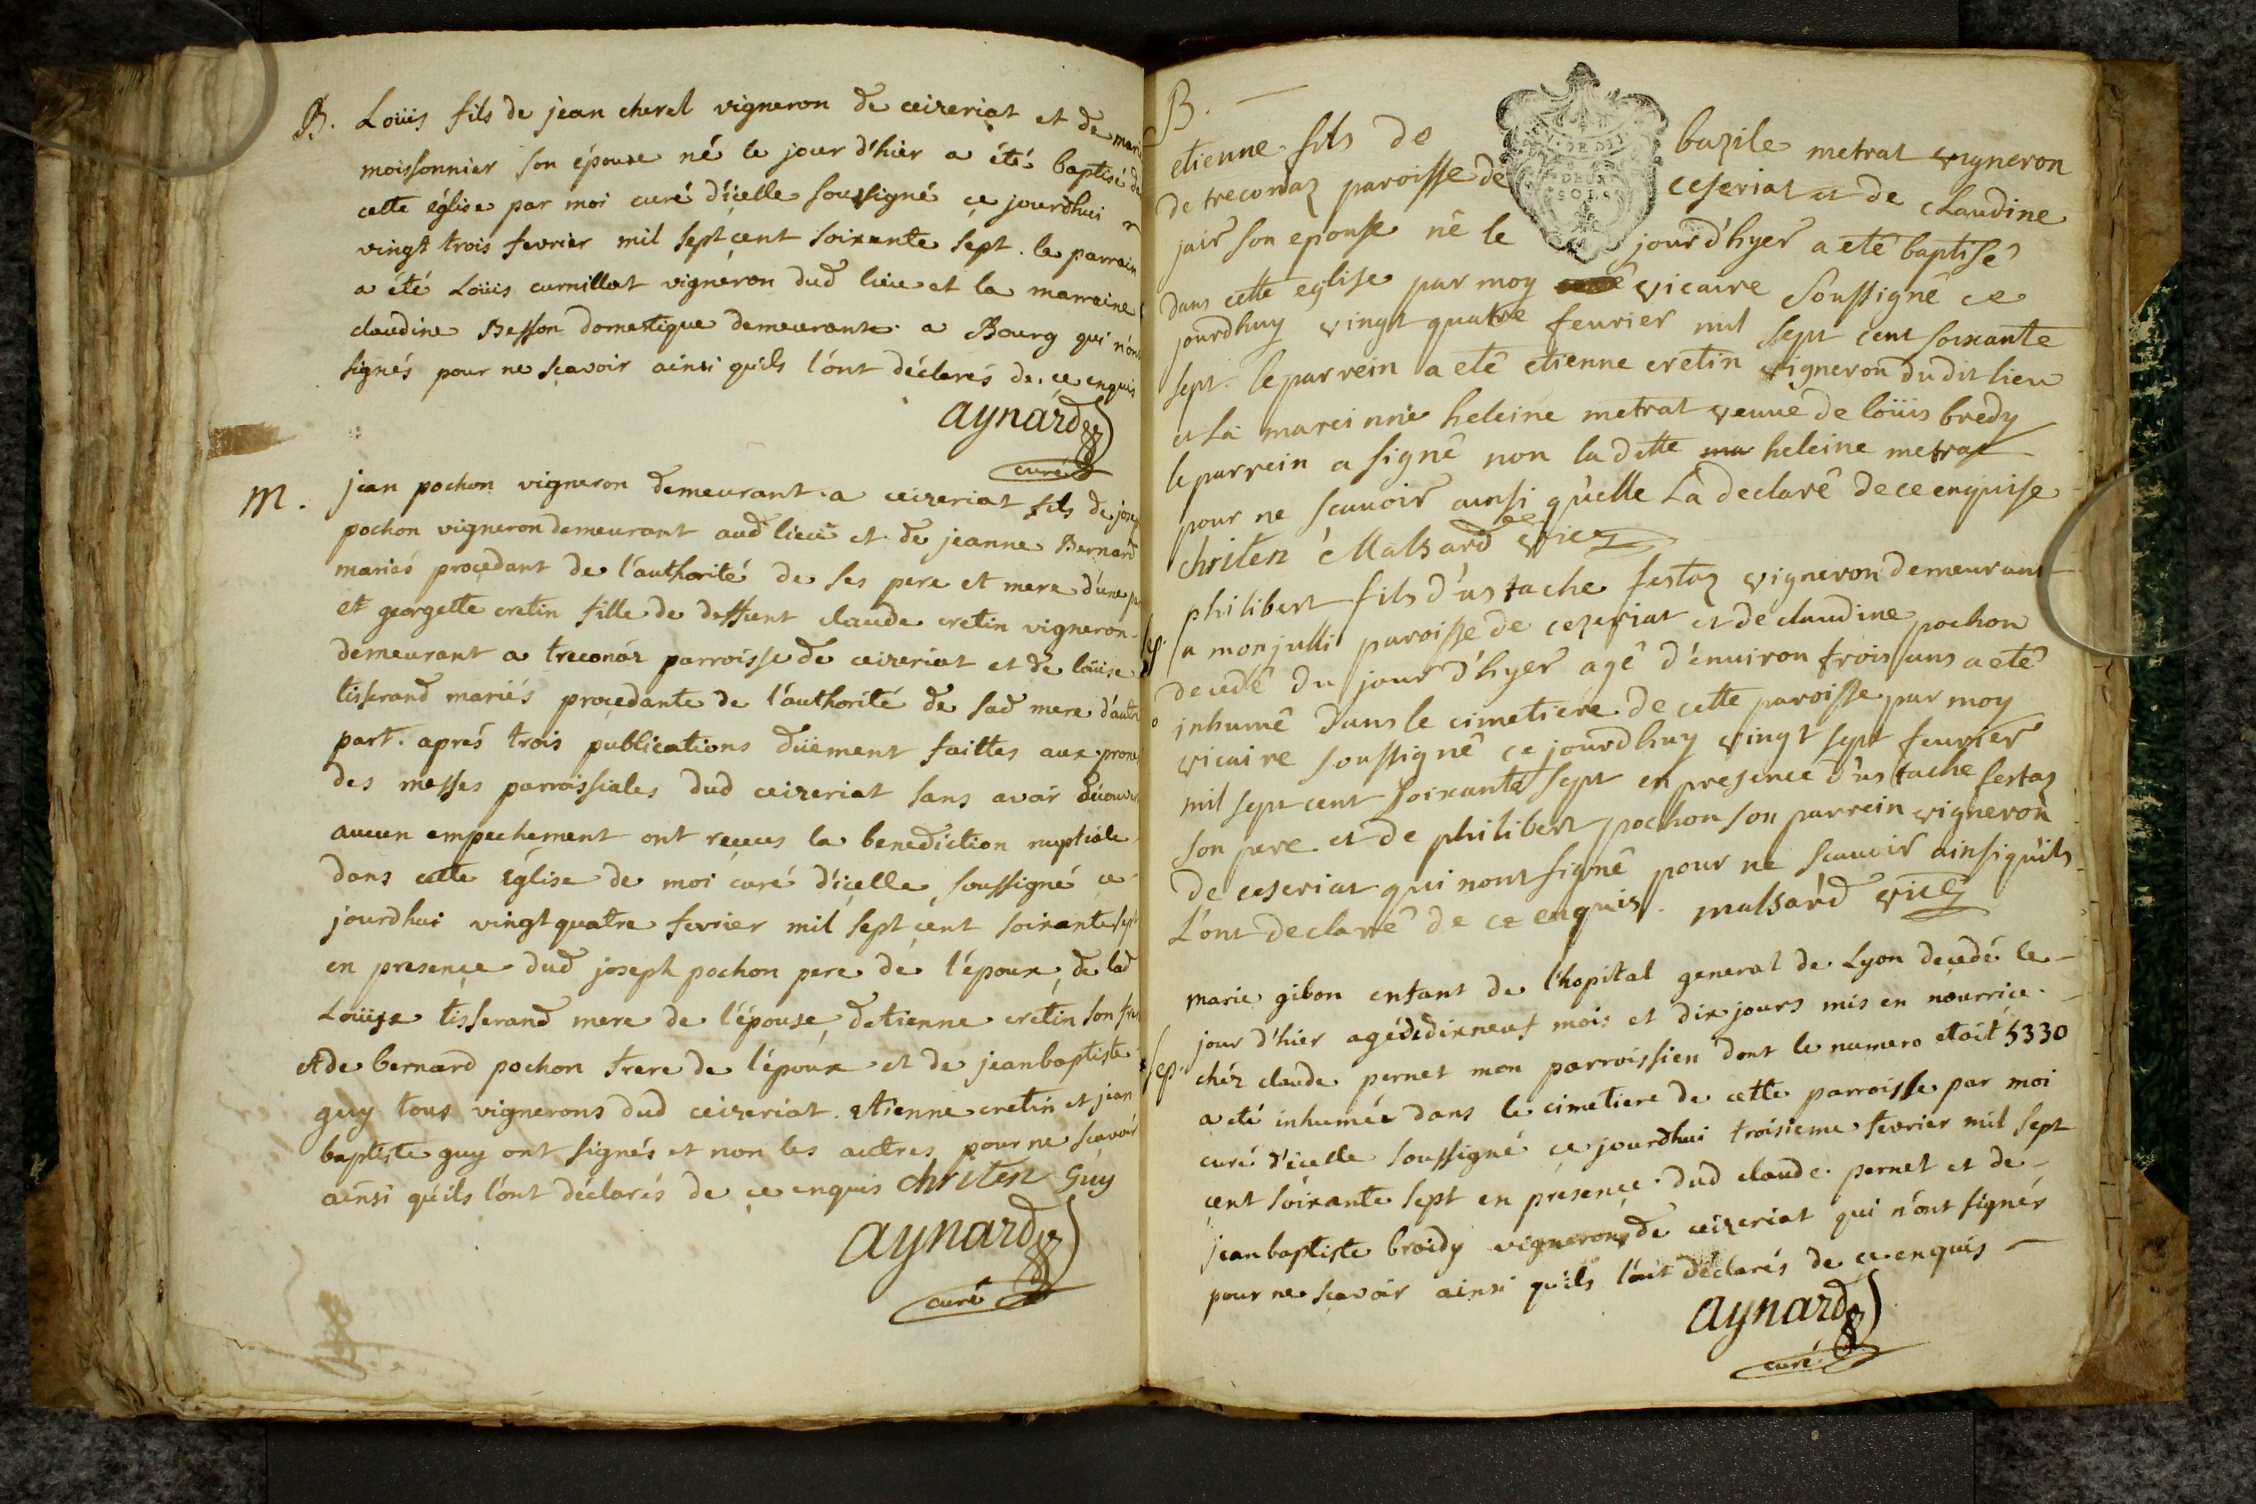 B. Loüis fils de jean cherel vigneron de ceizeriat et de mari
moissonnier son épouse né le jour d'hier a été baptisé de
cette église par moi curé d'icelle soussigné ce jourdhui
vingt trois fevrier mil sept cent soixante sept. le parrain
a été Loüis curnillat vignéron dud lieu et la marraine
claudine Besson domestique demeurante a Bourg qui n'ont
signés pour ne sçavoir ainsi qu'ils l'ont déclarés de ce enquis
aynard
curé
M. jean pochon vigneron demeurant a ceizeriat fils de josep
pochon vigneron demeurant aud lieu et de jeanne Bernard
mariés procedant de l'authorité de ses pere et mere d'une p
et georgette cretin fille de deffunt claude cretin vigneron
demeurant a treconas parroisse de ceizeriat et de loüise
tisserand mariés procedante de l'authorité de sad mere d'autre
part. aprés trois publications düement faittes aux prones
des messes parroissiales dud ceizeriat sans avoir découver
aucun empechement ont reçues la benediction nuptiale
dans cette Église de moi curé d'icelle soussigné ce
jourdhui vingt quatre fevrier mil sept cent soixante sept
en presence dud joseph pochon pere de l'époux, de lad
Loüise tisserand mere de l'épouse, detienne cretin son frer
et de bernard pochon frere de l'époux et de jeanbaptiste
guy tous vignerons dud ceizeriat. etienne cretin et jean
baptiste guy ont signés et non les autres pour ne sçavoir
ainsi qu'ils l'ont déclarés de ce enquis chriten Guy
aynard
curé
B.
etienne fils de bazile metrat vigneron
de treconaz paroisse de ceseriat et de claudine
jair son epouse né le jour d'hyer a eté baptisé
dans cette eglise par moy vicaire soussigné ce
jourdhuy vingt quatre feurier mil sept cent soixante
sept. le parrein a eté etienne cretin vigneron dudit lieu
et la mareinne heleine metrat veuue de loüis bredy
le parrein a signé non ladette ma heleine metrat
pour ne scauoir ainsi qu'elle La declaré de ce enquise
chriten Malsard vice
philibert fils d'ustache festaz vigneron demeurant
a monjulli paroisse de cezeriat et de claudine pochon
decedé du jour d'hyer agé d'enuiron trois ans a eté
inhumé dans le cimetiere de cette paroisse par moy
vicaire soussigné ce jourdhuy vingt sept feurier
mil sept cent soixante sept en presence d'ustache festaz
son pere et de philibert pochon son parrein vigneron
de ceseriat qui nont signé pour ne scauoir ainsi qu'ils
L'ont declaré de ce enquis. malsard vice
marie gibon enfant de l'hopital general de Lyon decedé le
jour d'hier agé de dixneuf mois et dix jours mis en nourrice
Sep. chéz claude pernet mon parroissien dont le numero etoit 5330
a eté inhumée dans le cimetiere de cette parroisse par moi
curé d'icelle soussigné ce jourdhui troisieme fevrier mil sept
cent soixante sept en présence dud claude pernet et de
jeanbaptiste broidy vignerons de ceizeriat qui n'ont signés
pour ne sçavoir ainsi qu'ils l'ont déclarés de ce enquis
aynard
curé